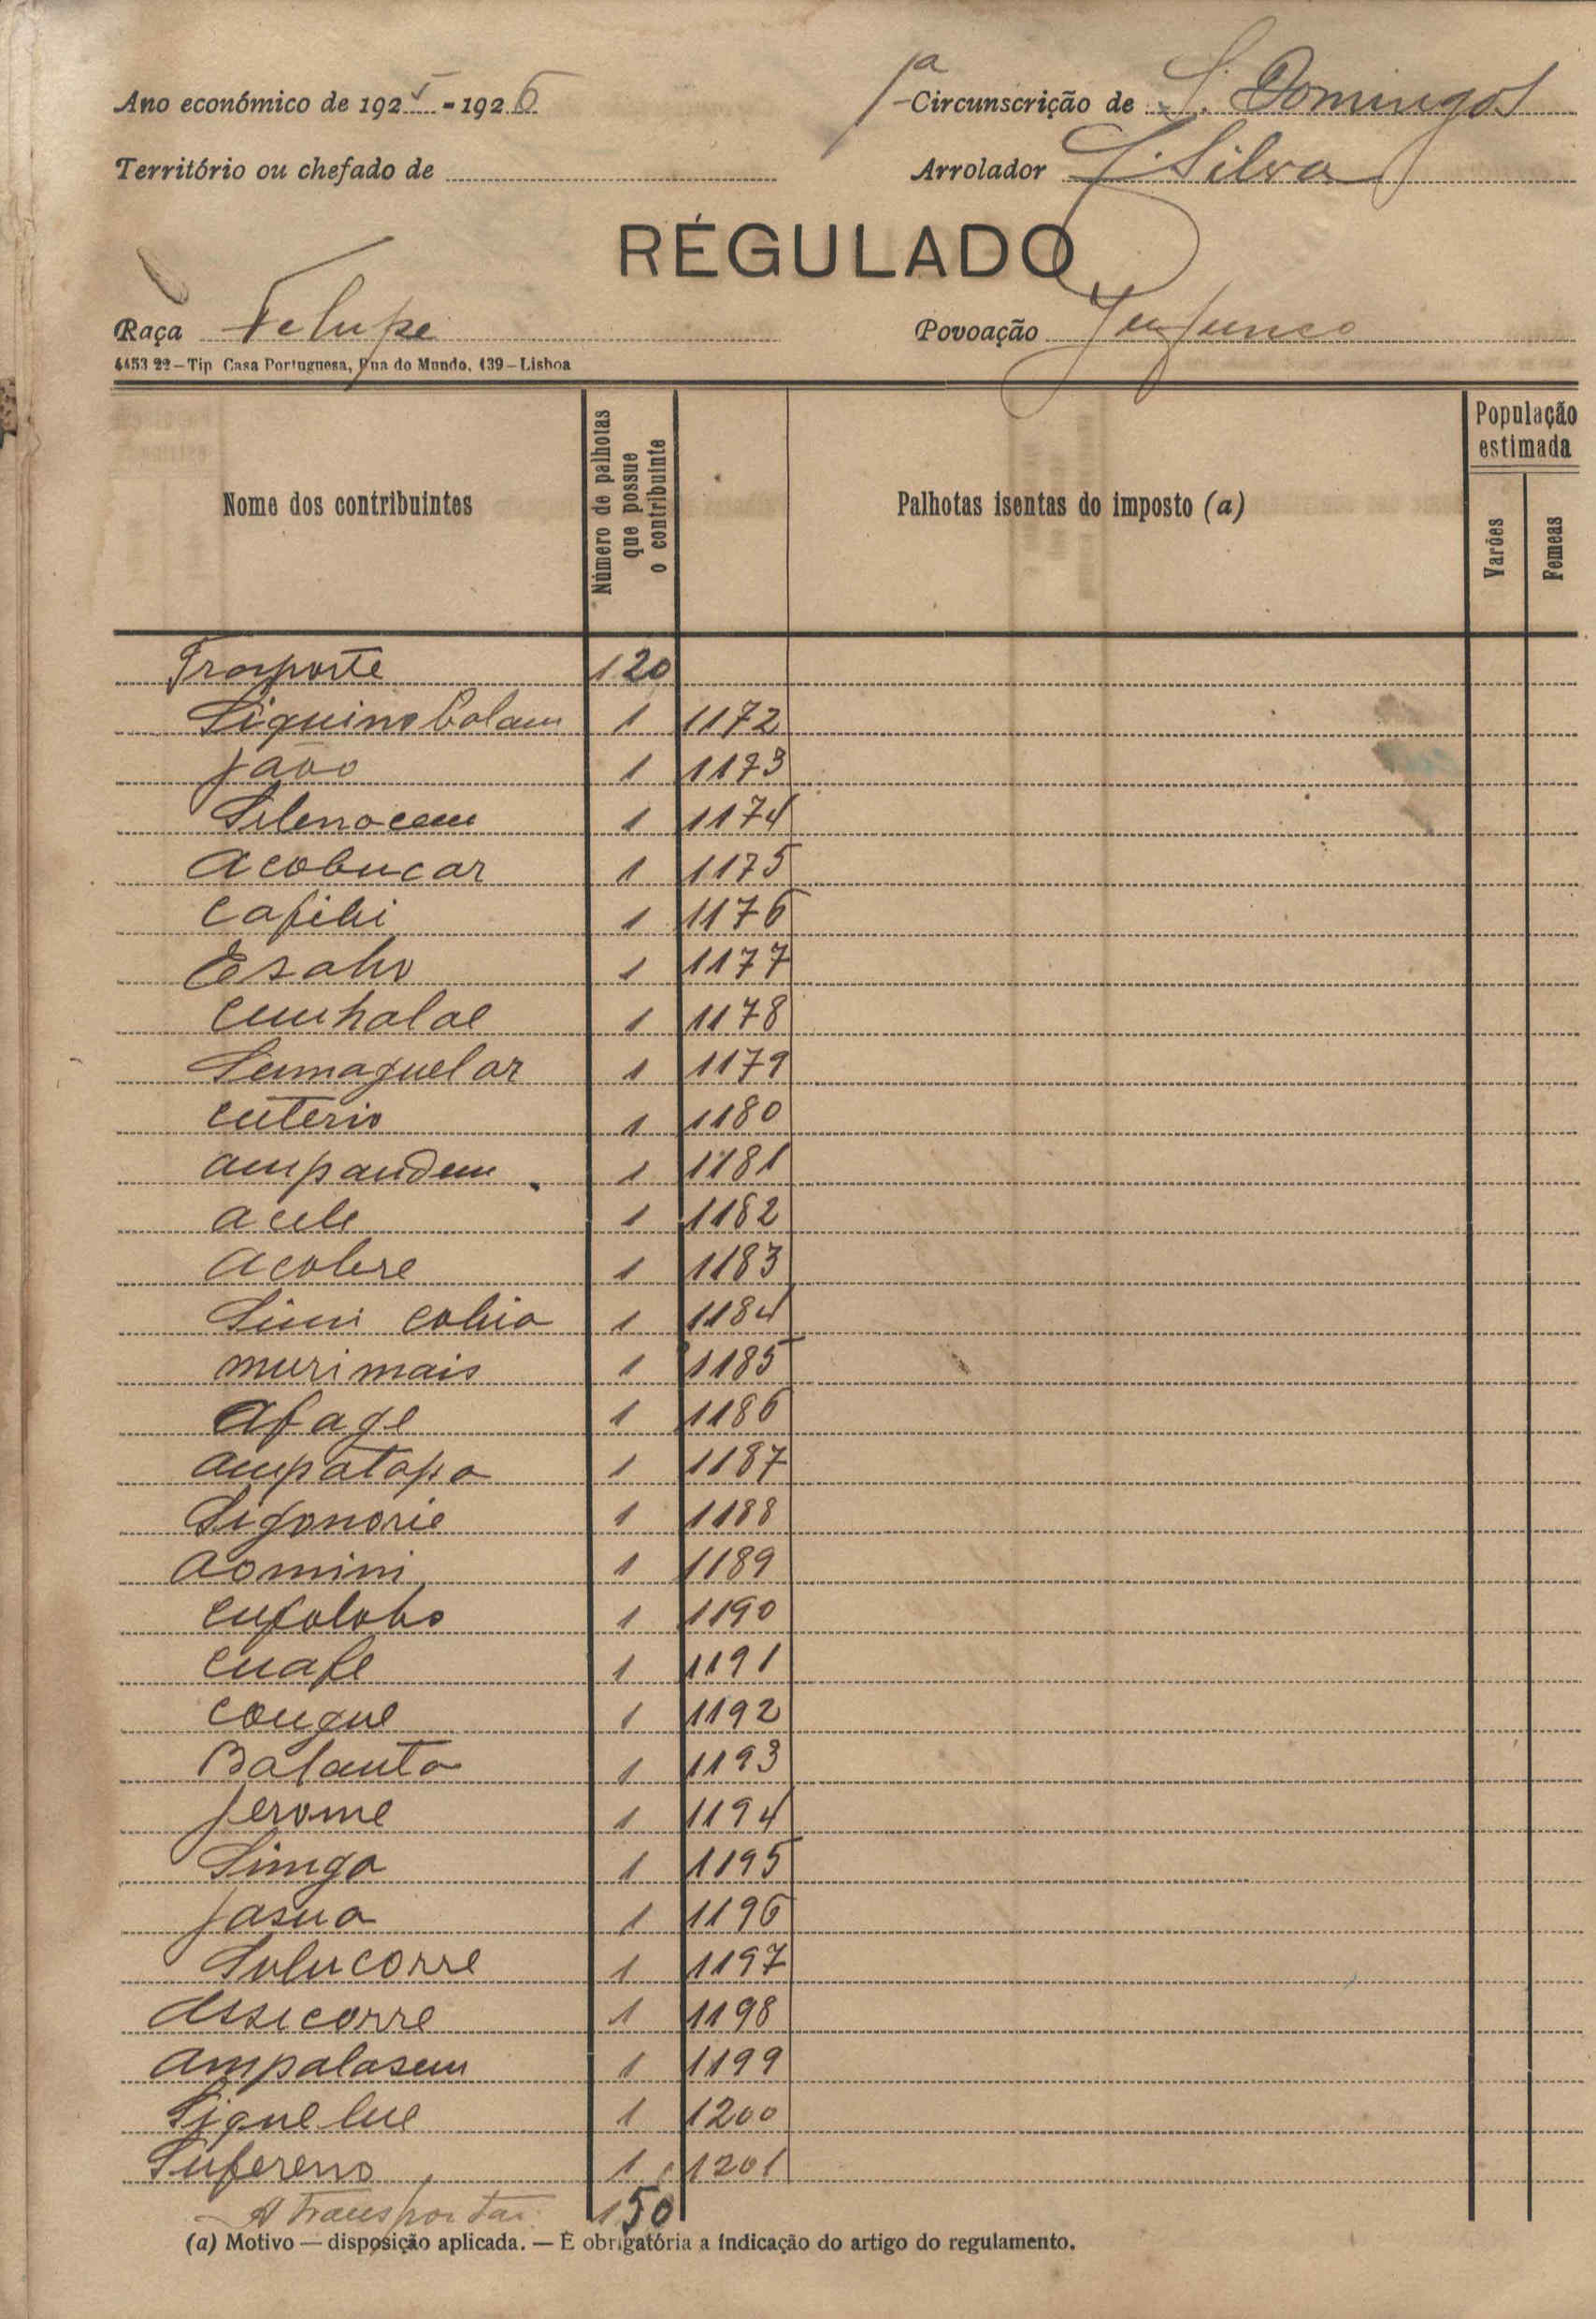 Ano económico de 1925-1926
1ª Circunscrição de S. Domingos
Território ou chefado de
Arrolador J. Silva
RÉGULADO
Raça Felupe
Povoação Jufunco
4453 22—Tip Casa Portuguesa, Rua do Mundo, 139—Lisboa
Nome dos contribuintes
Número de palhotas que possue o contribuinte
Palhotas isentas do imposto (a)
População estimada
Varões
Femeas
Trasporte 120
Siquino Colam 1 1172
João 1 1173
Silenocem 1 1174
Acobucar 1 1175
Cafibi 1 1176
1 1177
Cumhalal 1 1178
Sumaguelar 1 1179
Cuterio 1 1180
Ampandem 1 1181
Acule 1 1182
Acobre 1 1183
1 1184
Murimais 1 1185
Afage 1 1186
Ampatapa 1 1187
Sigonorie 1 1188
Aomini 1 1189
1 1190
Cuafe 1 1191
Cougue 1 1192
Balanta 1 1193
Jerome 1 1194
Simga 1 1195
Jasua 1 1196
Sulucorre 1 1197
Assicorre 1 1198
Ampalasem 1 1199
Siquelue 1 1200
Sufereno 1 1201
A transportar 150
(a) Motivo — disposição aplicada. — É obrigatória a indicação do artigo do regulamento.